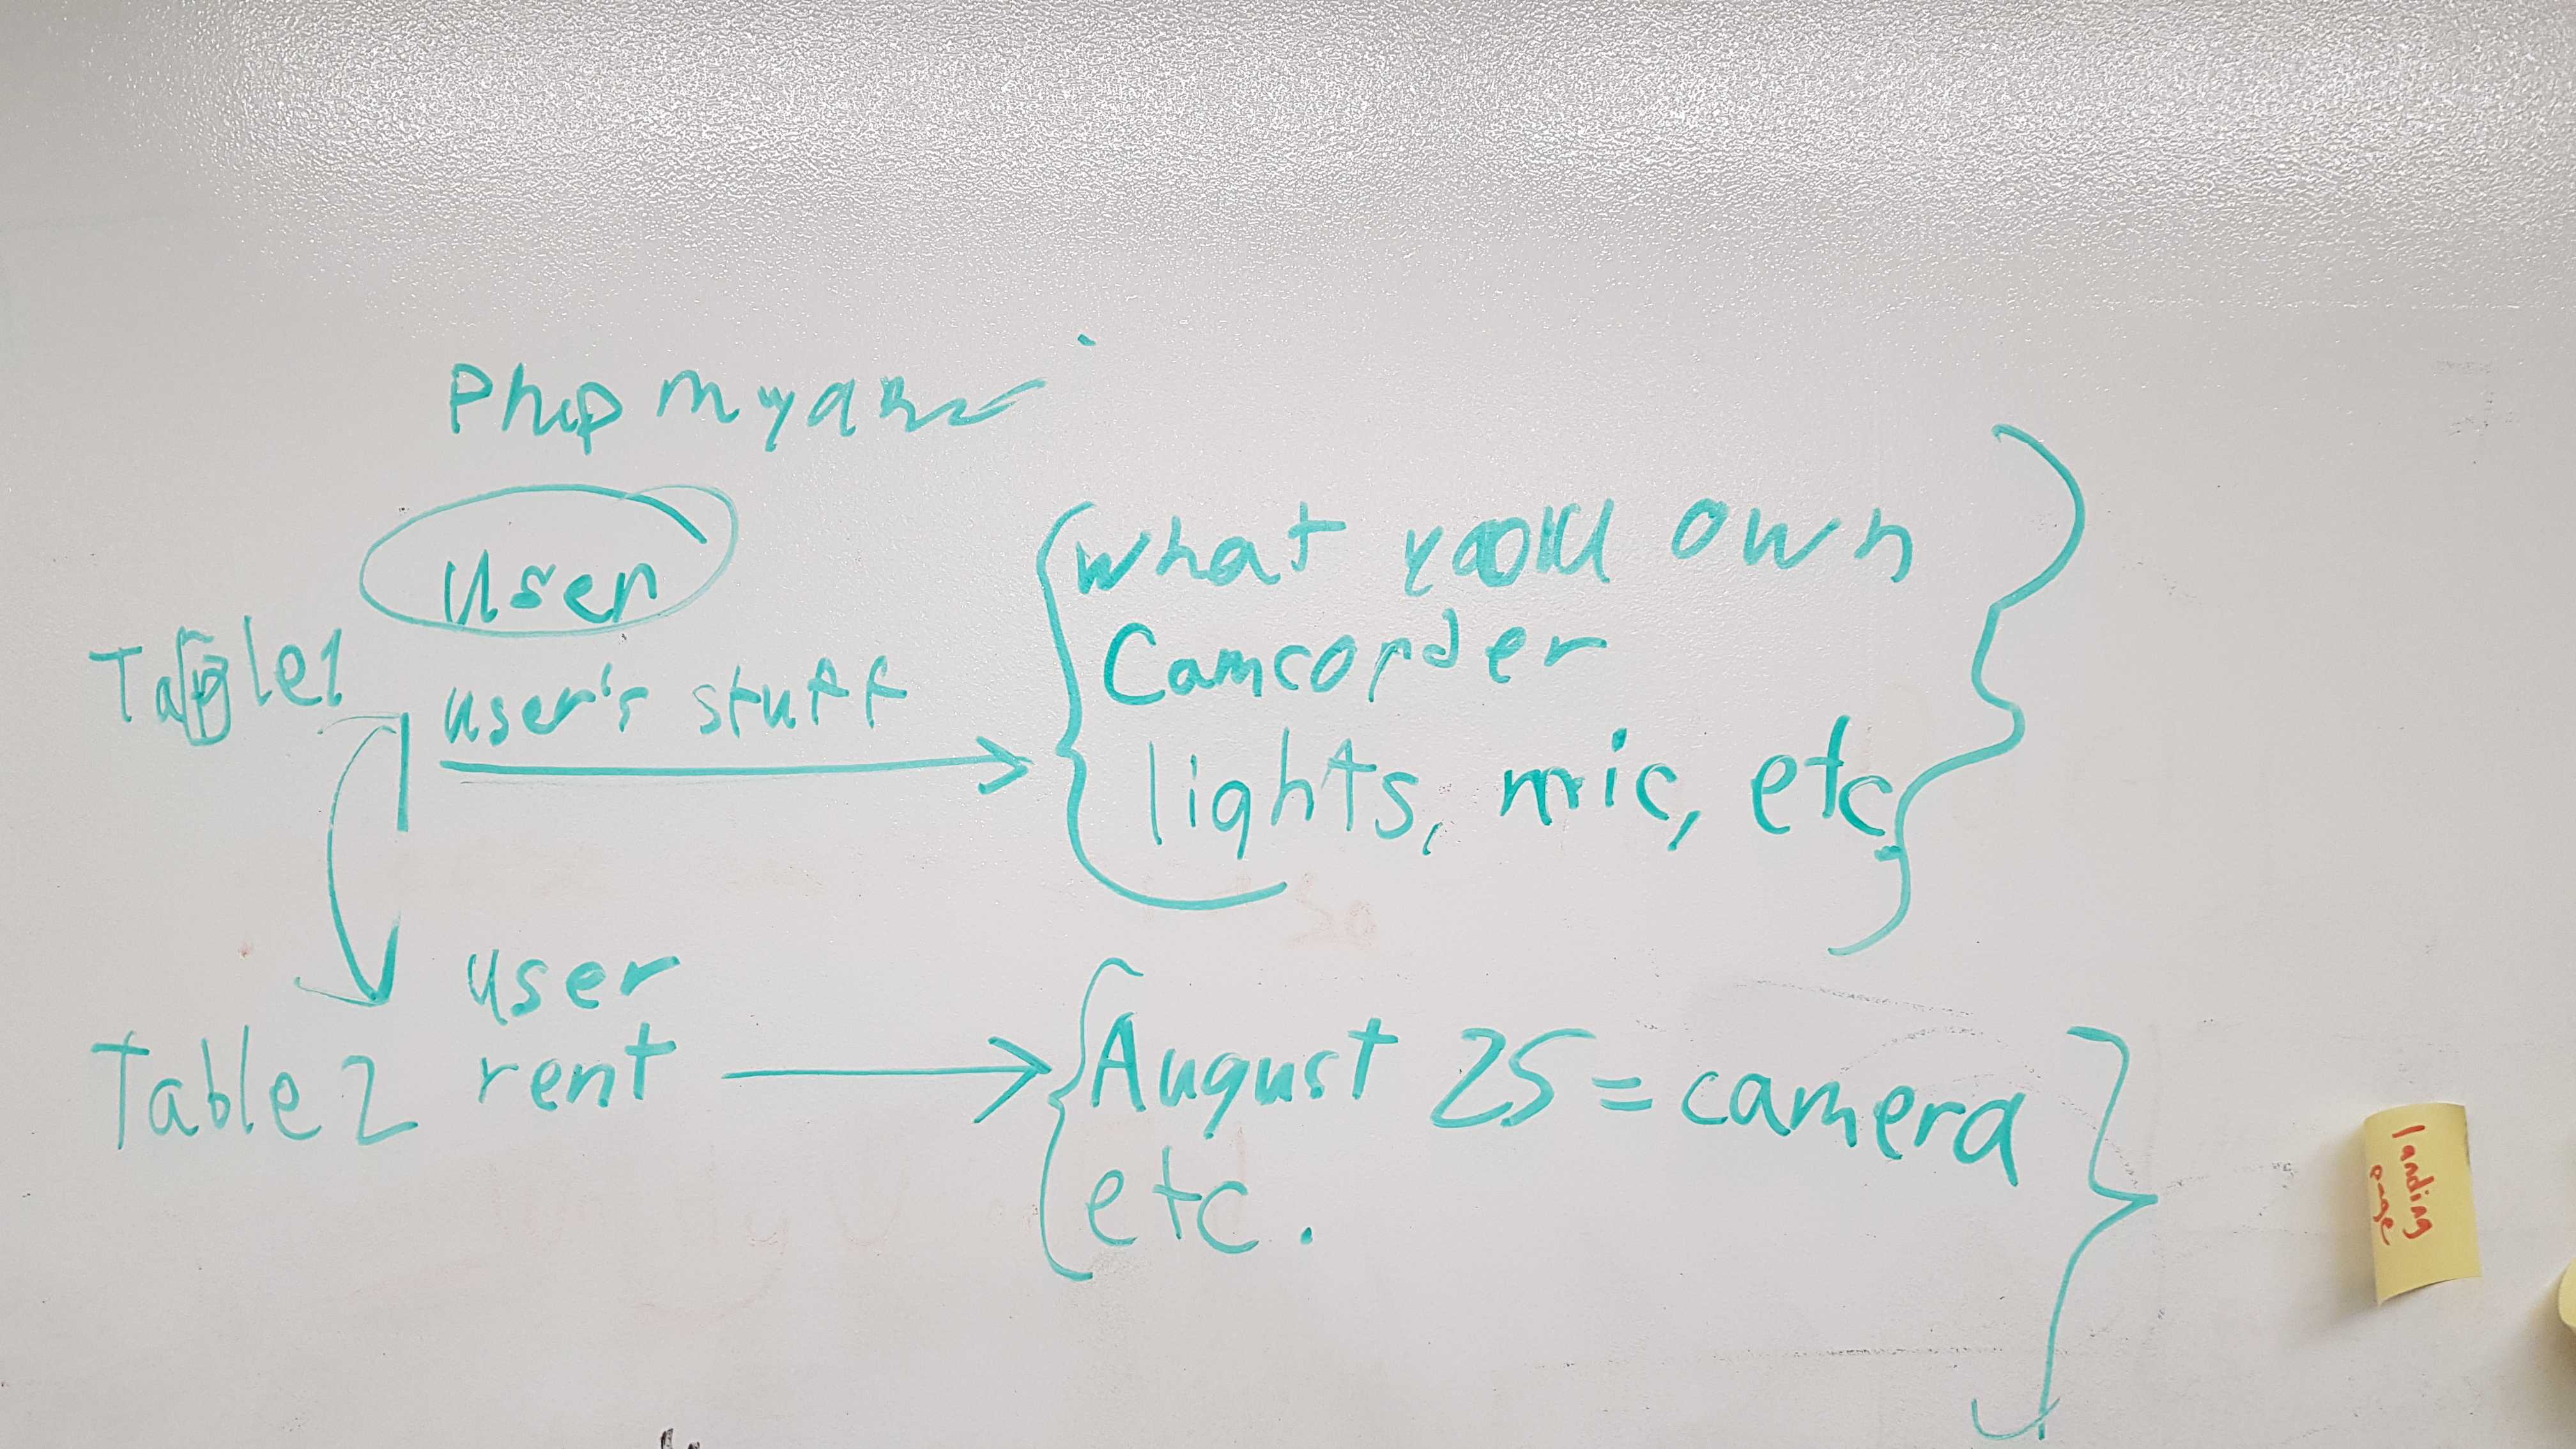 user
Table1
user's stuff
What you own
Camcorder
lights, mic, etc
user
Table 2 rent
August 25 = camera
etc.
landing
page